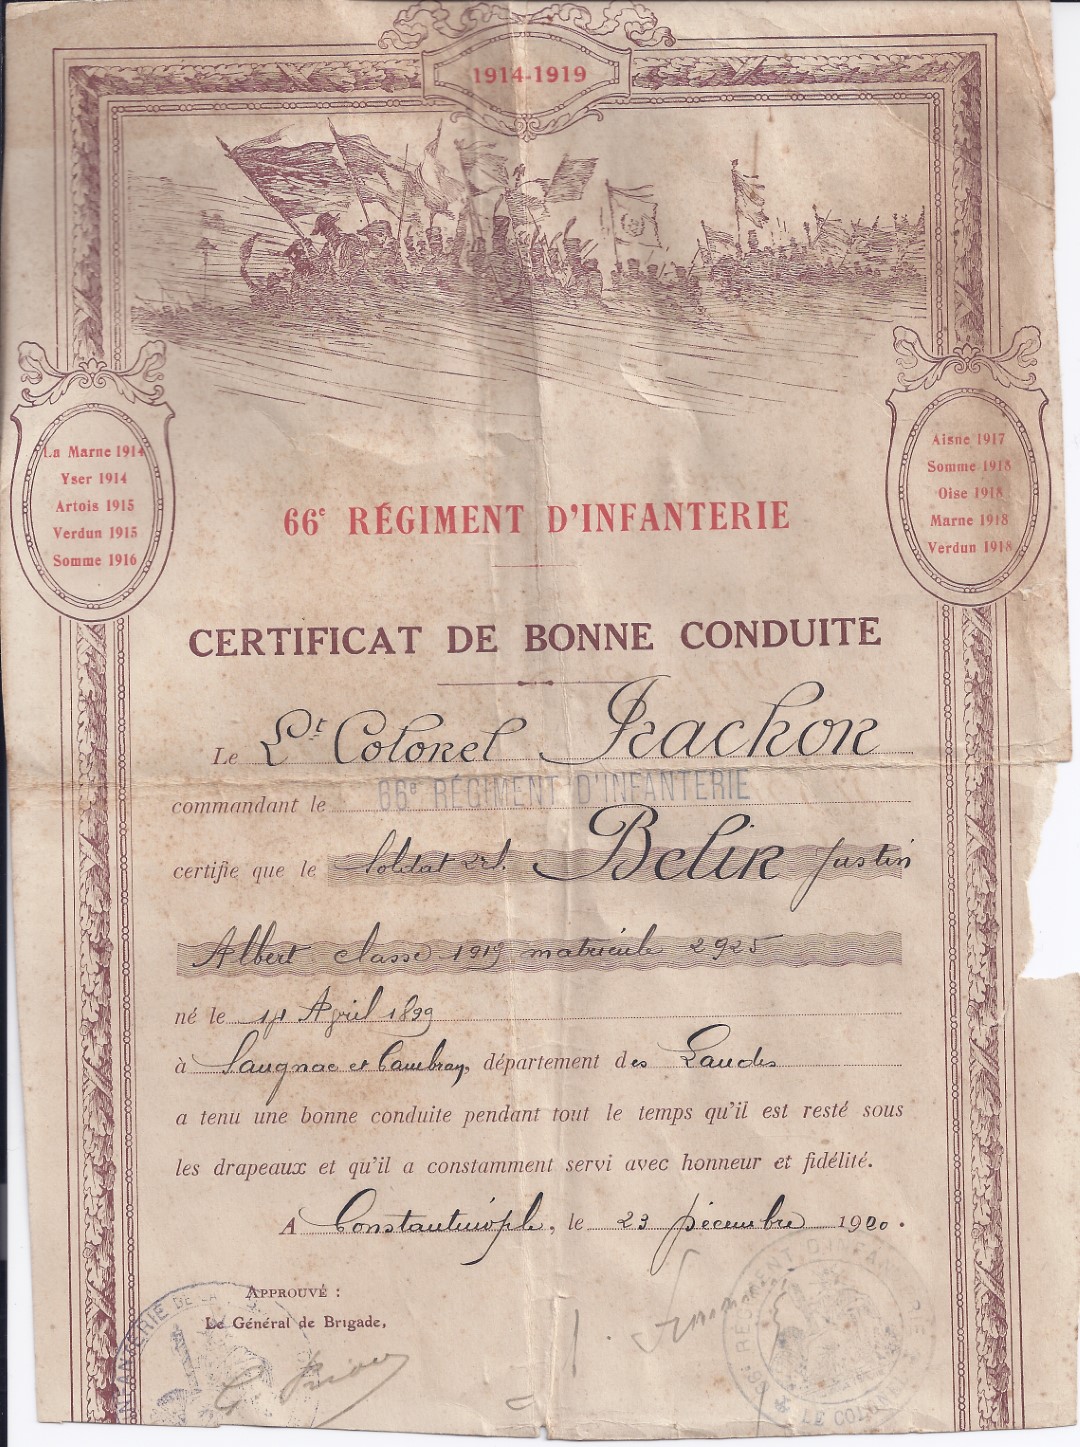 1914-1919
La Marne 1914
Yser 1914
Artois 1915
Verdun 1915
Somme 1916
Aisne 1917
Somme 1918
Oise 1918
Marne 1918
Verdun 1918
66e RÉGIMENT D'INFANTERIE
CERTIFICAT DE BONNE CONDUITE
Le Lt Colonel Rachon
commandant le 66e RÉGIMENT D'INFANTERIE
certifie que le Soldat 2e cl. Belin Justin
Albert classe 1919 matricule 2925
né le Avril 1899
à Saugnac et Cambran, département des Landes
a tenu une bonne conduite pendant tout le temps qu'il est resté sous
les drapeaux et qu'il a constamment servi avec honneur et fidélité.
A Constantinople, le 23 Décembre 1920.
APPROUVÉ :
Le Général de Brigade,
INFANTERIE DE LA
66e RÉGIMENT D'INFANTERIE
LE COL